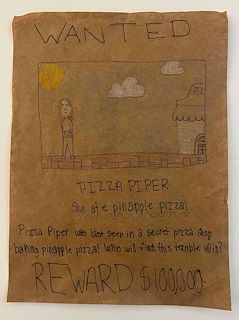 WANTED
PIZ
PIZZA PIPER
She ate pinapple pizza!
Pizza Piper was last seen in a secret pizza shop
baking pinapple pizza! Who will find this terrible villin?
REWARD $100000